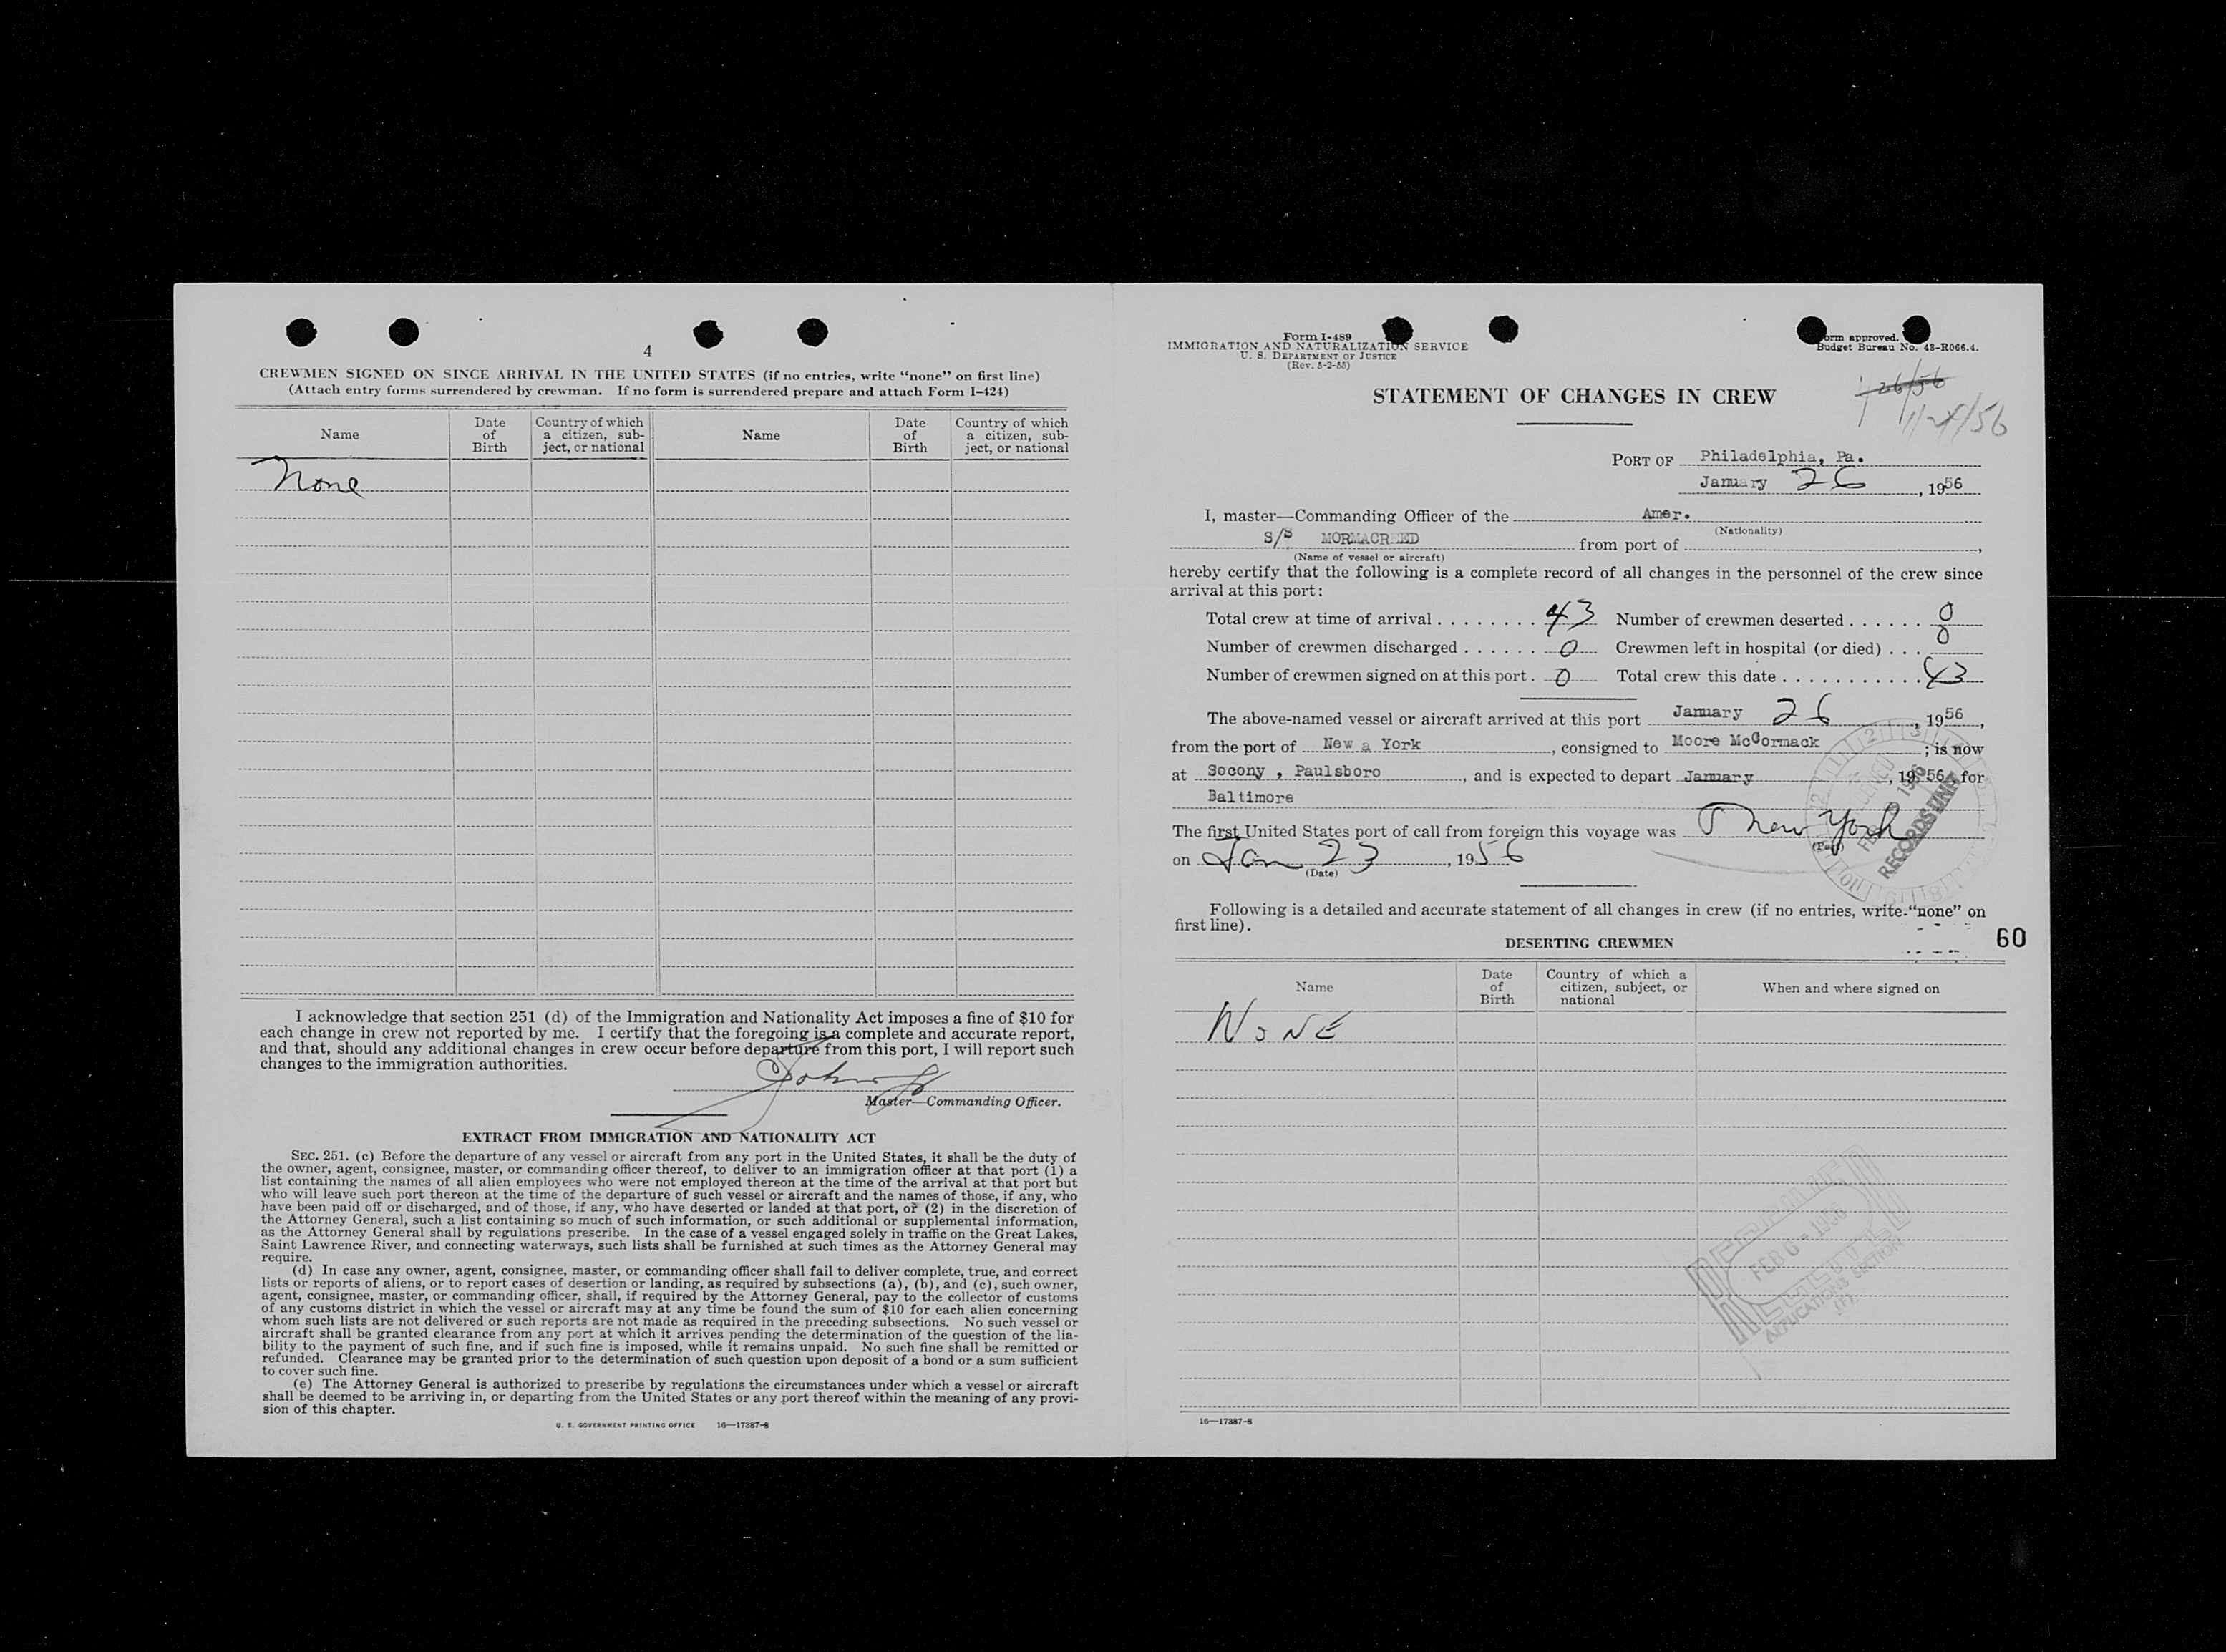 4
CREWMEN SIGNED ON SINCE ARRIVAL IN THE UNITED STATES (if no entries, write “none” on first line)
(Attach entry forms surrendered by crewman. If no form is surrendered prepare and attach Form I–424)
Name Date of Birth Country of which a citizen, subject, or national Name Date of Birth Country of which a citizen, subject, or national
None
I acknowledge that section 251 (d) of the Immigration and Nationality Act imposes a fine of $10 for
each change in crew not reported by me. I certify that the foregoing is a complete and accurate report,
and that, should any additional changes in crew occur before departure from this port, I will report such
changes to the immigration authorities.
Master—Commanding Officer.
EXTRACT FROM IMMIGRATION AND NATIONALITY ACT
SEC. 251. (c) Before the departure of any vessel or aircraft from any port in the United States, it shall be the duty of
the owner, agent, consignee, master, or commanding officer thereof, to deliver to an immigration officer at that port (1) a
list containing the names of all alien employees who were not employed thereon at the time of the arrival at that port but
who will leave such port thereon at the time of the departure of such vessel or aircraft and the names of those, if any, who
have been paid off or discharged, and of those, if any, who have deserted or landed at that port, or (2) in the discretion of
the Attorney General, such a list containing so much of such information, or such additional or supplemental information,
as the Attorney General shall by regulations prescribe. In the case of a vessel engaged solely in traffic on the Great Lakes,
Saint Lawrence River, and connecting waterways, such lists shall be furnished at such times as the Attorney General may
require.
(d) In case any owner, agent, consignee, master, or commanding officer shall fail to deliver complete, true, and correct
lists or reports of aliens, or to report cases of desertion or landing, as required by subsections (a), (b), and (c), such owner,
agent, consignee, master, or commanding officer, shall, if required by the Attorney General, pay to the collector of customs
of any customs district in which the vessel or aircraft may at any time be found the sum of $10 for each alien concerning
whom such lists are not delivered or such reports are not made as required in the preceding subsections. No such vessel or
aircraft shall be granted clearance from any port at which it arrives pending the determination of the question of the lia-
bility to the payment of such fine, and if such fine is imposed, while it remains unpaid. No such fine shall be remitted or
refunded. Clearance may be granted prior to the determination of such question upon deposit of a bond or a sum sufficient
to cover such fine.
(e) The Attorney General is authorized to prescribe by regulations the circumstances under which a vessel or aircraft
shall be deemed to be arriving in, or departing from the United States or any port thereof within the meaning of any provi-
sion of this chapter.
U. S. GOVERNMENT PRINTING OFFICE 16—17387-8
Form I-489
IMMIGRATION AND NATURALIZATION SERVICE
U. S. DEPARTMENT OF JUSTICE
(Rev. 5-2-55)
Form approved.
Budget Bureau No. 43-R066.4.
STATEMENT OF CHANGES IN CREW
PORT OF Philadelphia, Pa.
January 26, 1956
I, master—Commanding Officer of the Amer.
(Nationality)
S/S MORMACREED from port of ,
(Name of vessel or aircraft)
hereby certify that the following is a complete record of all changes in the personnel of the crew since
arrival at this port:
Total crew at time of arrival ........ 43 Number of crewmen deserted ...... 0
Number of crewmen discharged ...... 0 Crewmen left in hospital (or died) ... 0
Number of crewmen signed on at this port . 0 Total crew this date ........... 43
The above-named vessel or aircraft arrived at this port January 26, 1956,
from the port of New York, consigned to Moore McCormack ; is now
at Socony , Paulsboro, and is expected to depart January , 1956, for
Baltimore
The first United States port of call from foreign this voyage was New York
(Port)
on Jan 23, 1956
(Date)
FEB 1956
RECORDS UNIT
Following is a detailed and accurate statement of all changes in crew (if no entries, write “none” on
first line).
60
DESERTING CREWMEN
Name Date of Birth Country of which a citizen, subject, or national When and where signed on
NONE
FEB 1956
APPLICATIONS SECTION
16—17387-8